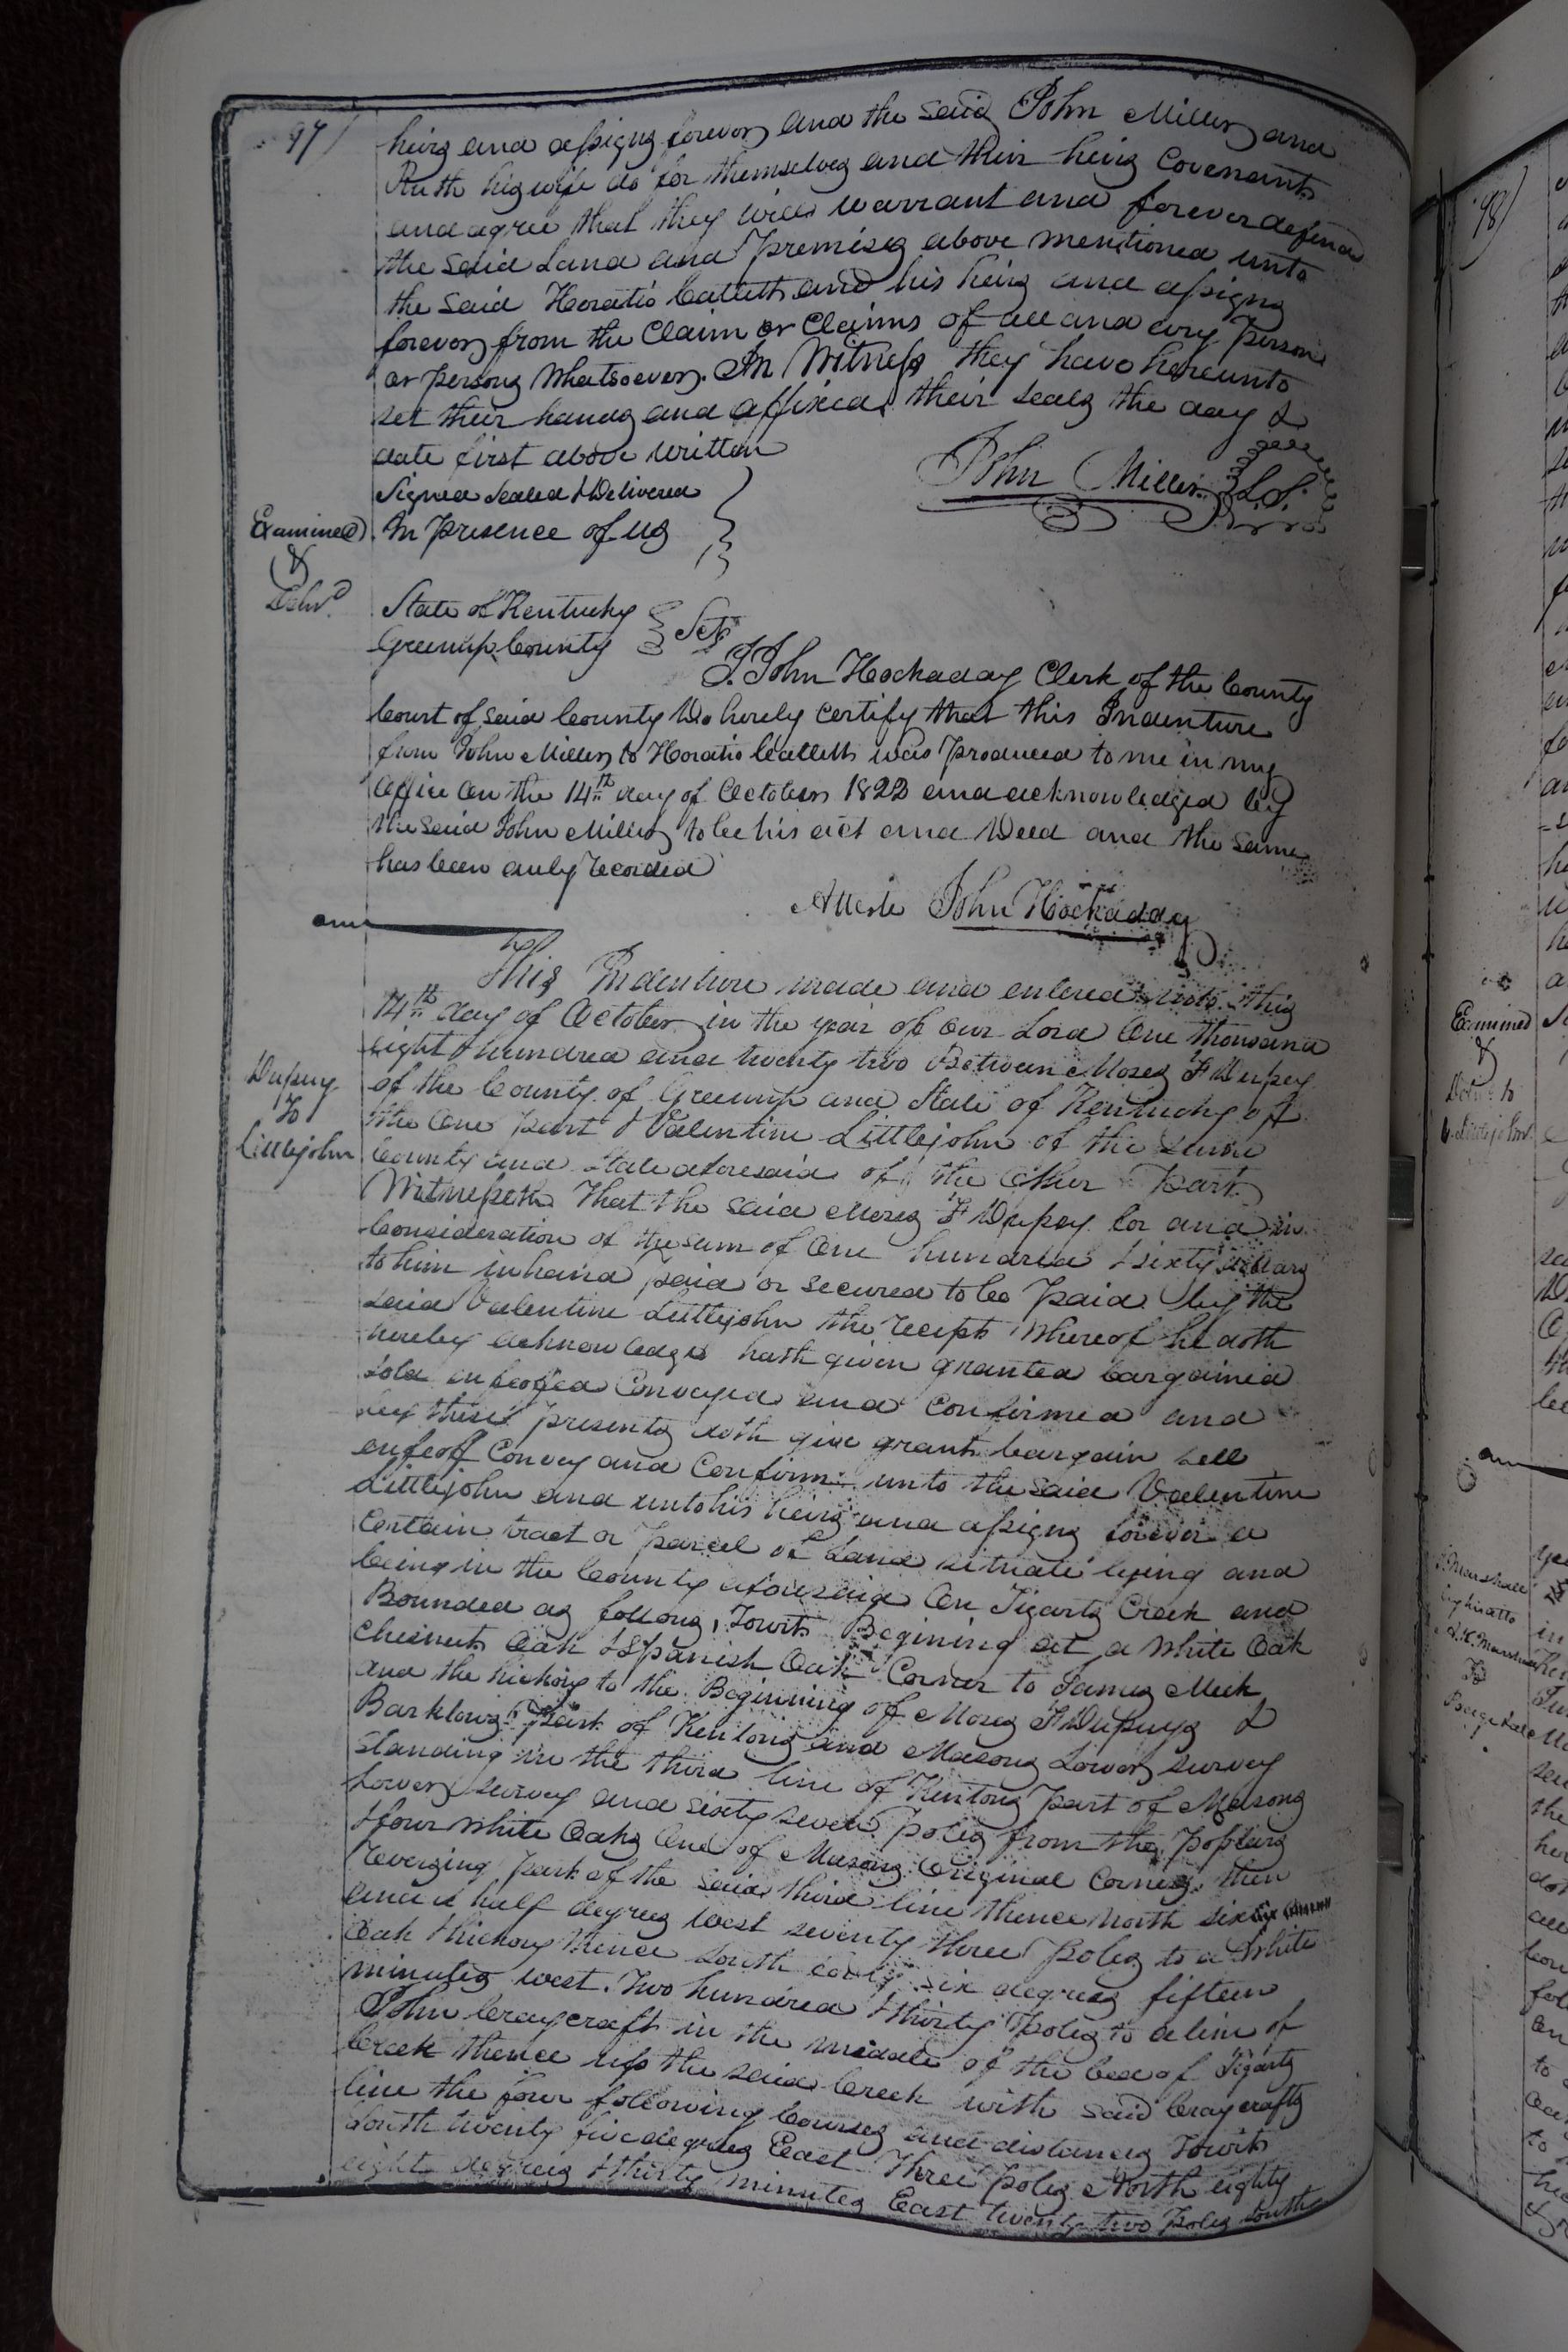 97
heirs and assigns forever and the said John Miller and
Ruth his wife do for themselves and their heirs Covenant
and agree that they will warrant and forever defend
the said Land and Premises above mentioned unto
the said Horatio Catlett and his heirs and assigns
forever from the Claim or Claims of all and evry Person
or persons Whatsoever. In Witness they have hereunto
set their hands and affixed their seals the day &
date first above written
Signed Sealed & Delivered
In presence of us
John Miller L.S.
Examined
&
Delivd
State of Kentucky
Greenup County Sct
I John Hockaday Clerk of the County
Court of said County Do hereby Certify that this Indenture
from John Miller to Horatio Catlett was Produced to me in my
Office On the 14th day of October 1822 and acknowledged by
the said John Miller to be his act and Deed and the same
has been duly recorded
Atteste John Hockaday
This Indenture made and entered into this
14th day of October in the year of our Lord One thousand
eight hundred and twenty two Between Moses F Dupuy
of the County of Greenup and State of Kentucky of
the One part & Valentine Littlejohn of the same
County and State aforesaid of the Other Part
Dupuy
To
Littlejohn
Witnesseth That the said Moses F Dupuy for and in
Consideration of the sum of One hundred & sixty dollars
to him in hand paid or secured to be Paid by the
said Valentine Littlejohn the receipt whereof he doth
hereby acknowledge hath given granted bargained
sold enfeoffed Conveyed and Confirmed and
by these presents doth give grant bargain sell
enfeoff Convey and Confirm unto the said Valentine
Littlejohn and unto his heirs and assigns forever a
Certain tract or parcel of Land situate lying and
being in the County aforesaid On Tigarts Creek and
Bounded as follows, Towit Begining at a White Oak
Chesnut Oak & Spanish Oak Corner to James Meek
and the hickory to the Beginning of Moses F Dupuys &
Barklows Part of Kentons and Masons Lower survey
Standing in the third line of Kentons part of Masons
Lower survey and sixty seven poles from the Poplars
& four White Oaks One of Masons Original Corners then
reversing part of the said third line thence North sixty
and a half degrees West seventy three Poles to a White
Oak & hickory thence South six degrees fifteen
minutes west. Two hundred & thirty Poles to a line of
John Craycraft in the middle of the bed of Tigarts
Creek thence up the said Creek with said Craycrafts
line the four following Courses and distances Towit
South twenty five degrees East Three poles North eighty
eight degrees & thirty minutes East twenty two Poles South
98
Examined
&
to
Marshall
To